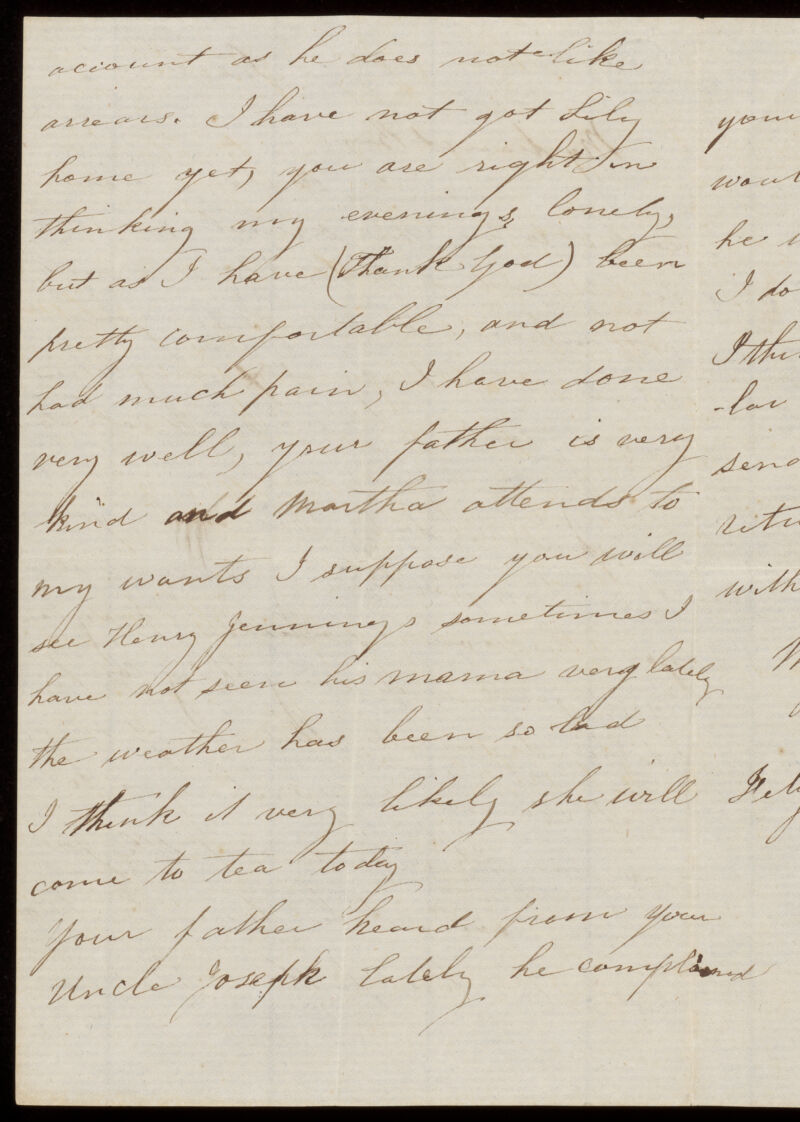 account as he does not like
arrears. I have not got Lily
home yet, you are right in
thinking my evenings, lonely,
but as I have (Thank God) been
pretty comfortable, and not
had much pain, I have done
very well, your father is very
kind and Martha attends to
my wants I suppose you will
see Henry Jennings sometimes I
have not seen his mama very lately
the weather has been so bad
I think it very likely she will
come to tea today
Your father heard from your
Uncle Joseph lately he complained
your
he
I do
-lar
with